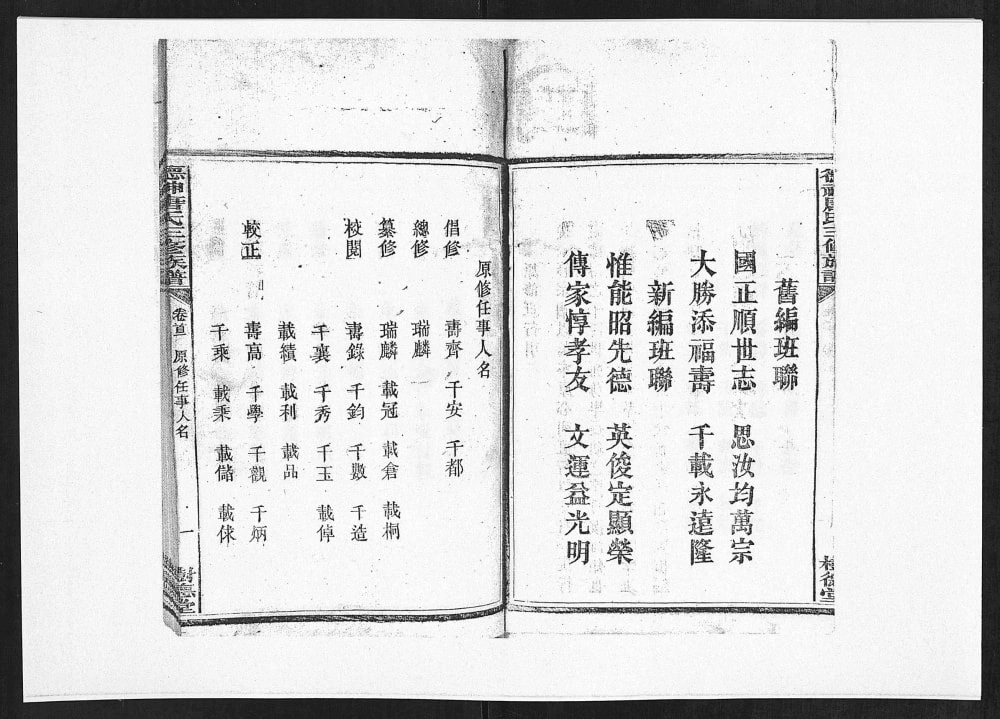 舊編班聯
國正順世志 思汝均萬宗
大勝添福壽 千載永遠隆
新編班聯
惟能昭先德 英俊定顯榮
傳家惇孝友 文運益光明
原修任事人名
倡修 壽齊 千安 千都
總修 瑞麟
纂修 瑞麟 載冠 載倉 載桐
校閱 壽錄 千鈞 千數 千造
千襄 千秀 千玉 載倬
載績 載利 載品
較正 壽高 千學 千觀 千炳
千乘 載乘 載儲 載俅
唐氏三修族譜
卷首 原修任事人名 一
樹德堂